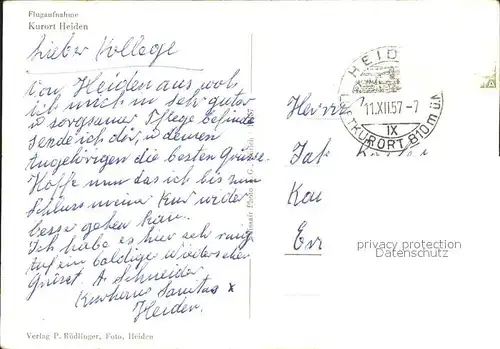 Flugaufnahme
Kurort Heiden
Lieber Kollege
Von Heiden aus, wo
ich mich in sehr guter
u sorgsamer Pflege befinde
sende ich dir, u deinen
Angehörigen die besten Grüsse.
Hoffe nun das ich bis zum
Schluss meiner Kur wieder
besser gehen kan.
Ich habe es hier sehr ruhig
Auf ein baldige wiedersehen
Grüsst. A. Schneider
Kurhaus Sanitas
Heiden.
Verlag P. Rüdlinger, Foto, Heiden
HEID
11.XII.57-7
IX
KURORT 810 m ü.M
Herrn
Jak
Kau
Er
privacy protection
Datenschutz